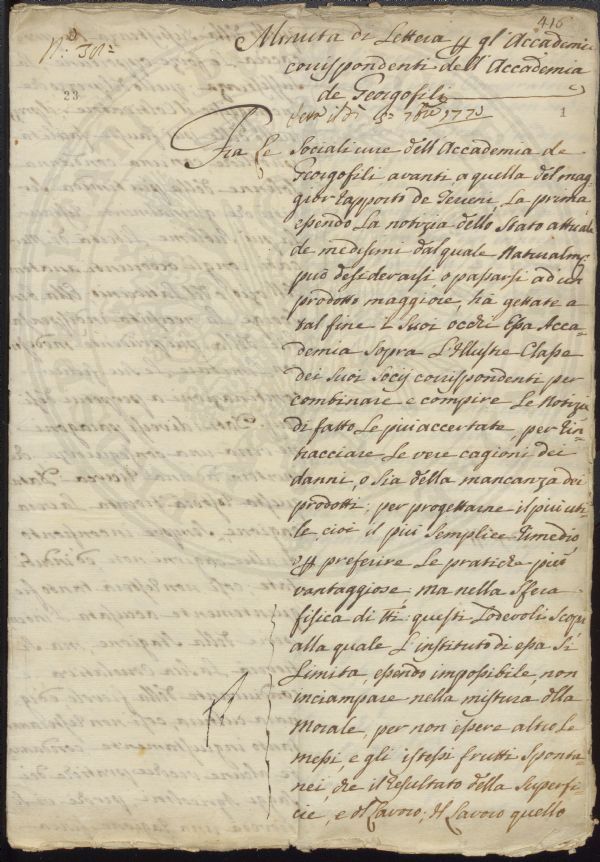 416
N.º 30.
Minuta di Lettera gl'Accademici
corrispondenti dell'Accademia
de Georgofili
23
1
1773
Fra le Socali cure dell'Accademia de
Georgofili avanti a quella del mag=
gior rapporto de Terreni, la prima
essendo la notizia dello Stato attuale
de medesimi dal quale Naturalm.e
può desiderarsi o passarsi ad un
prodotto maggiore, hà gettate a
tal fine i Suoi occhi essa Acca=
demia Sopra l'Illustre Classe
dei Suoi Socij corrispondenti per
combinare e compire le Notizie
di fatto le più accertate, per rin=
tracciare le vere cagioni dei
danni, o sia della mancanza dei
prodotti; per progettarne il più uti=
le, cioè il più Semplice rimedio
preferire le pratiche più
vantaggiose, ma nella Sfera
fisica di tti questi lodevoli Scopi
alla quale l'instituto di essa Si
limita, essendo impossibile, non
inciampare nella mistura della
Morale, per non essere altro le
messi, e gli istessi frutti Sponta=
nei, che il resultato della Superfi=
cie, e del Lavoro; Il Lavoro quello